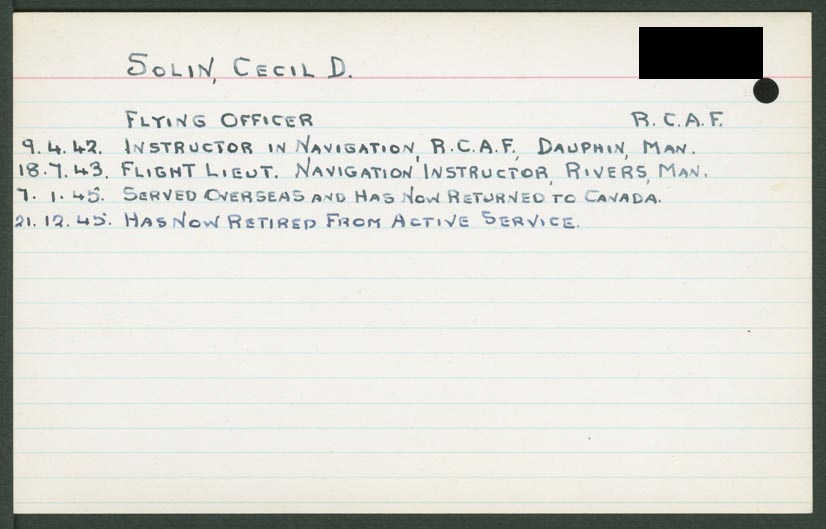 SOLIN, CECIL D.
FLYING OFFICER R.C.A.F.
9.4.42. INSTRUCTOR IN NAVIGATION, R.C.A.F., DAUPHIN, MAN.
18.7.43. FLIGHT LIEUT. NAVIGATION INSTRUCTOR, RIVERS, MAN.
7.1.45. SERVED OVERSEAS AND HAS NOW RETURNED TO CANADA.
21.12.45. HAS NOW RETIRED FROM ACTIVE SERVICE.